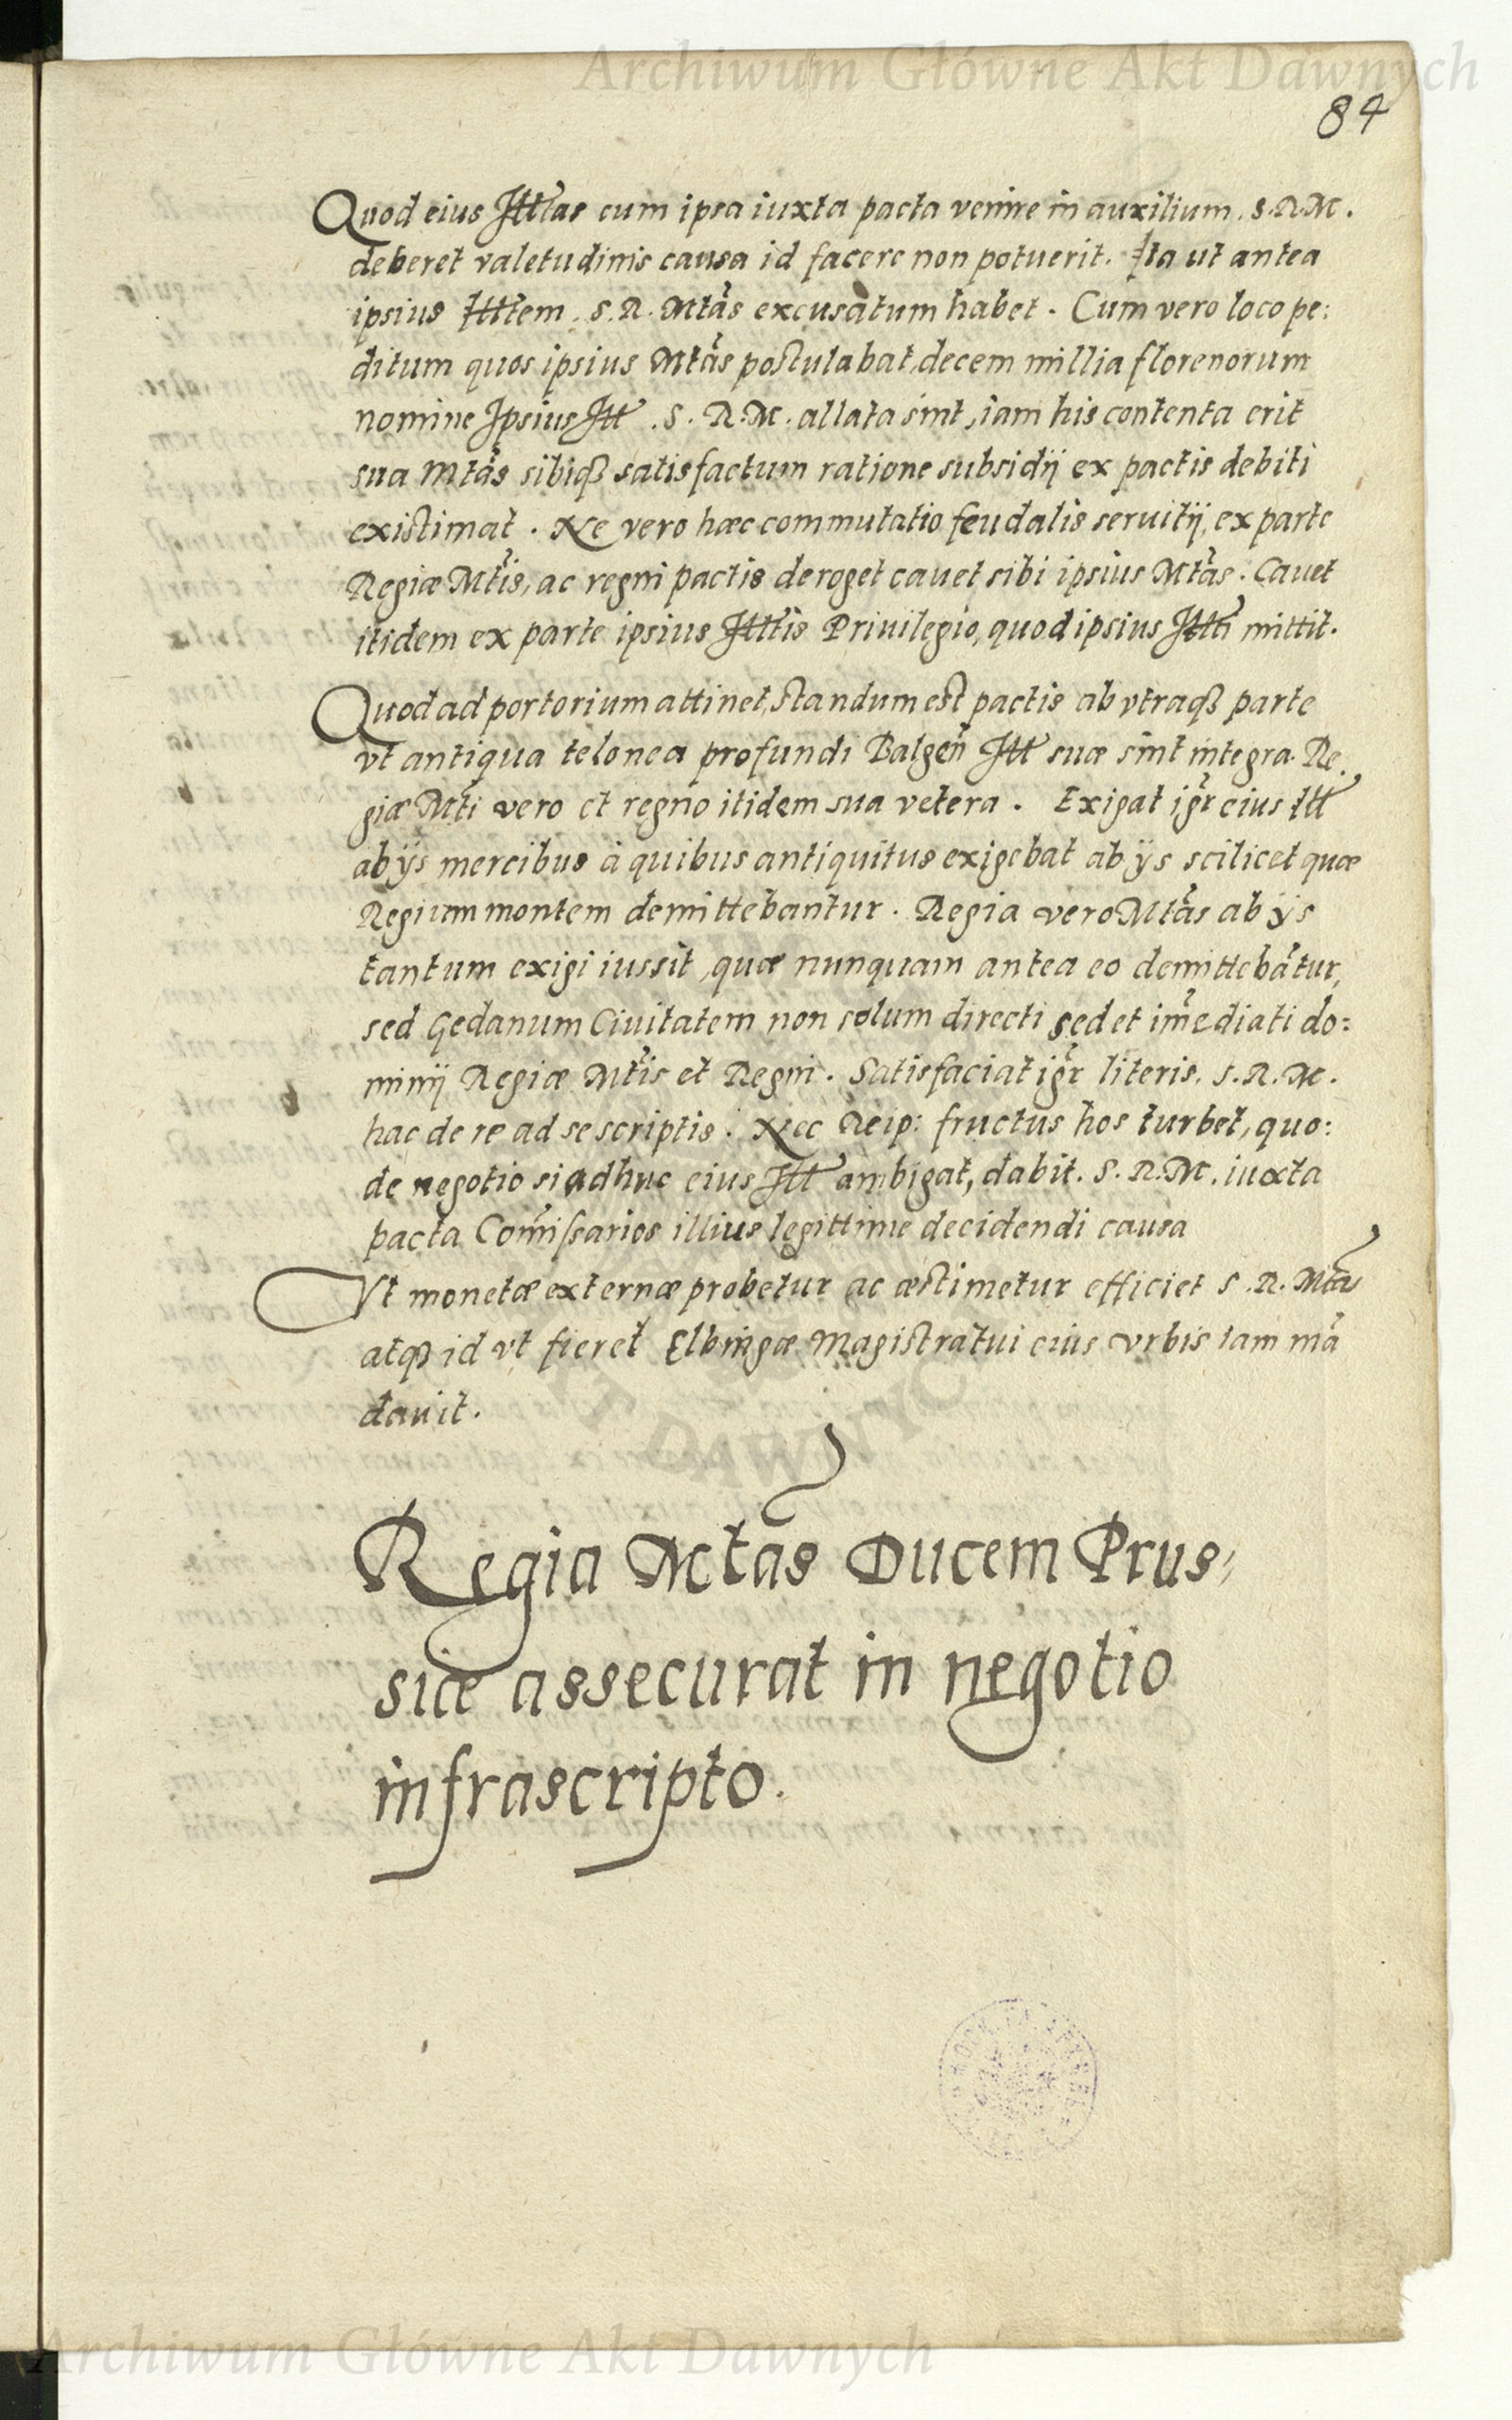 Archiwum Główne Akt Dawnych
84
Quod eius Illtas cum ipsa iuxta pacta venire in auxilium. S.R.M.
deberet valetudinis causa id facere non potuerit. Ita ut antea
ipsius Illtem. S.R. Mtas excusatum habet. Cum vero loco pe:
ditum quos ipsius Mtas postulabat, decem millia florenorum
nomine Ipsius Ill. S.R.M. allata sint, iam his contenta erit
sua Mtas sibiqȝ satisfactum ratione subsidij ex pactis debiti
existimat. Ne vero hæc commutatio feudalis seruitij, ex parte
Regiæ Mtis, ac regni pactis deroget cauet sibi ipsius Mtas. Cauet
itidem ex parte ipsius Illtis Priuilegio, quod ipsius Illti mittit.
Quod ad portorium attinet, standum est pactis ab vtraqȝ parte
vt antiqua telonea profundi Balgeñ Ill suæ sint integra. Re.
giæ Mti vero et regno itidem sua vetera. Exigat igr̃ eius Ill
ab ijs mercibus à quibus antiquitus exigebat ab ijs scilicet quæ
Regium montem demittebantur. Regia vero Mtas ab ijs
tantum exigi iussit, quæ nunquam antea eo demittebãtur,
sed Gedanum Ciuitatem non solum directi sed et im̃ediati do:
minij Regiæ Mtis et Regni. Satisfaciat igr̃ literis. S.R.M.
hac de re ad se scriptis. Nec Reip: fructus hos turbet, quo:
de negotio si adhuc eius Ill ambigat, dabit. S.R.M. iuxta
pacta Com̃issarios illius legittime decidendi causa
Vt monetæ externæ probetur ac æstimetur efficiet S.R. Mta
atqȝ id vt fieret Elbingæ Magistratui eius vrbis iam mã
dauit.
Regia Mtas Ducem Prus,
siæ assecurat in negotio
infrascripto.
Archiwum Główne Akt Dawnych